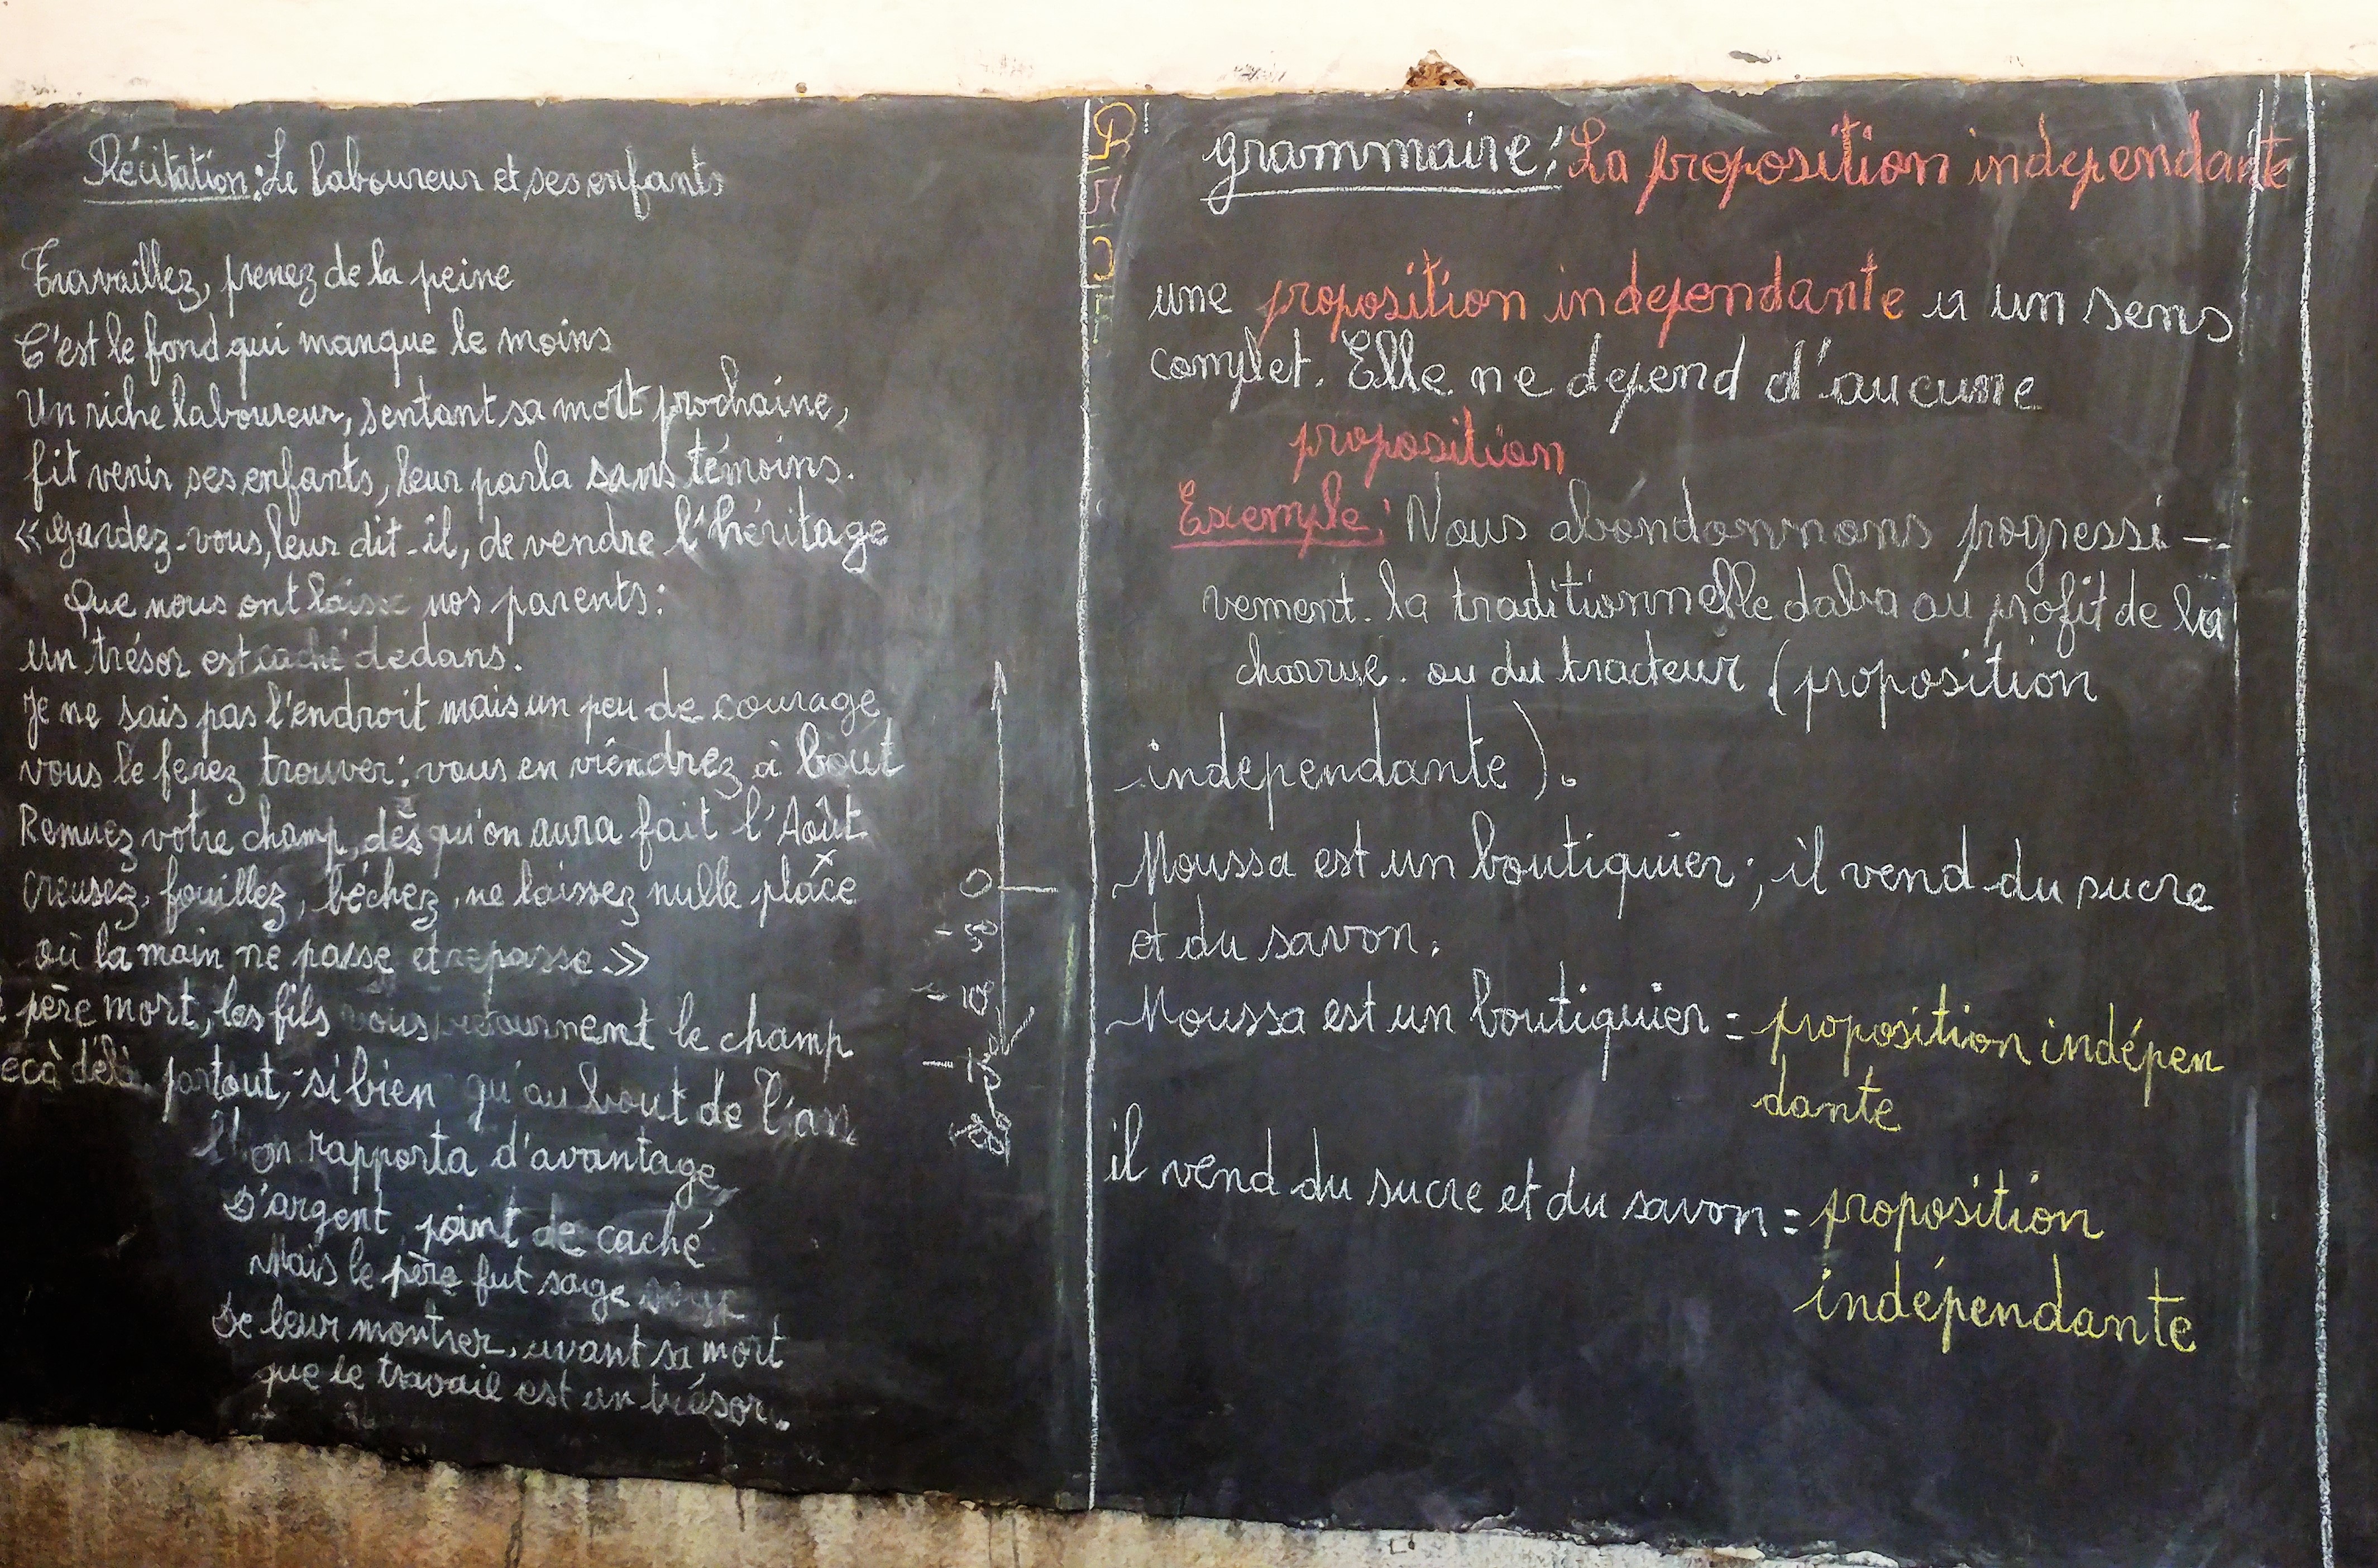 Récitation: Le laboureur et ses enfants
Travaillez, prenez de la peine
C'est le fond qui manque le moins
Un riche laboureur, sentant sa mort prochaine,
fit venir ses enfants, leur parla sans témoins.
« Gardez-vous, leur dit-il, de vendre l'héritage
Que nous ont laissé nos parents:
Un trésor est caché dedans.
Je ne sais pas l'endroit mais un peu de courage
vous le ferez trouver: vous en viendrez à bout
Remuez votre champ, dès qu'on aura fait l'Août
creusez, fouillez, béchez, ne laissez nulle place
où la main ne passe et repasse. »
père mort, les fils vous retournent le champ
deçà délà partout, si bien qu'au bout de l'an
l'on rapporta d'avantage
D'argent point de caché
Mais le père fut sage
De leur montrer, avant sa mort
que le travail est un trésor.
0
- 50
- 10
grammaire: La proposition independante
une proposition independante a un sens
complet. Elle ne depend d'aucune
proposition
Exemple: Nous abondonnons progressi-
vement. la traditionnelle daba au profit de la
charrue. ou du tracteur (proposition
independante).
Moussa est un boutiquier; il vend du sucre
et du savon.
Moussa est un boutiquier = proposition indépen
dante
il vend du sucre et du savon = proposition
indépendante